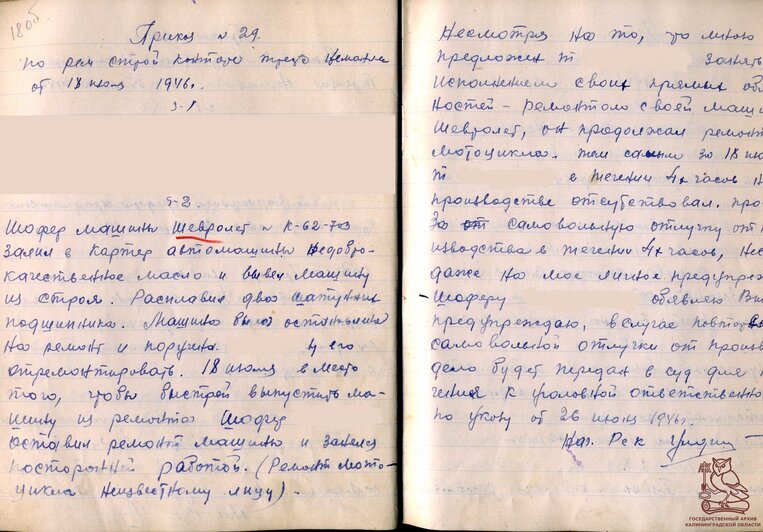 180б
Приказ № 29
по рем строй конторе треста
от 18 июля 1946 г.
§-1
§-2.
Шофер машины Шевролет № К-62-73
Залил в картер автомашины недобро-
качественное масло и вывел машину
из строя. Расплавил два шатунных
подшипника. Машина была остановлена
на ремонт и поручил. ему его
отремонтировать. 18 июля вместо
того, чтобы быстрей выпустить ма-
шину из ремонта Шофер
оставил ремонт машины и занялся
посторонней работой. (Ремонт мото-
цикла неизвестному лицу).
Несмотря на то, что мною
предложен т занять
исполнением своих прямых обя
ностей - ремонтом своей маши
Шевролет, он продолжал ремонт
мотоцикла. тем самым за 18 июл
т в течении 4х часов н
производстве отсутствовал.
За самовольную отлучку от п
изводства в течении 4х часов, нес
даже на мое личное предупреж
Шоферу объявляю
предупреждаю, в случае повторн
самовольной отлучки от произв
дело будет передан в суд для
чения к уголовной ответственно
по указу от 26 июня 1940 г.
Нач. Рск
ГОСУДАРСТВЕННЫЙ АРХИВ
КАЛИНИНГРАДСКОЙ ОБЛАСТИ